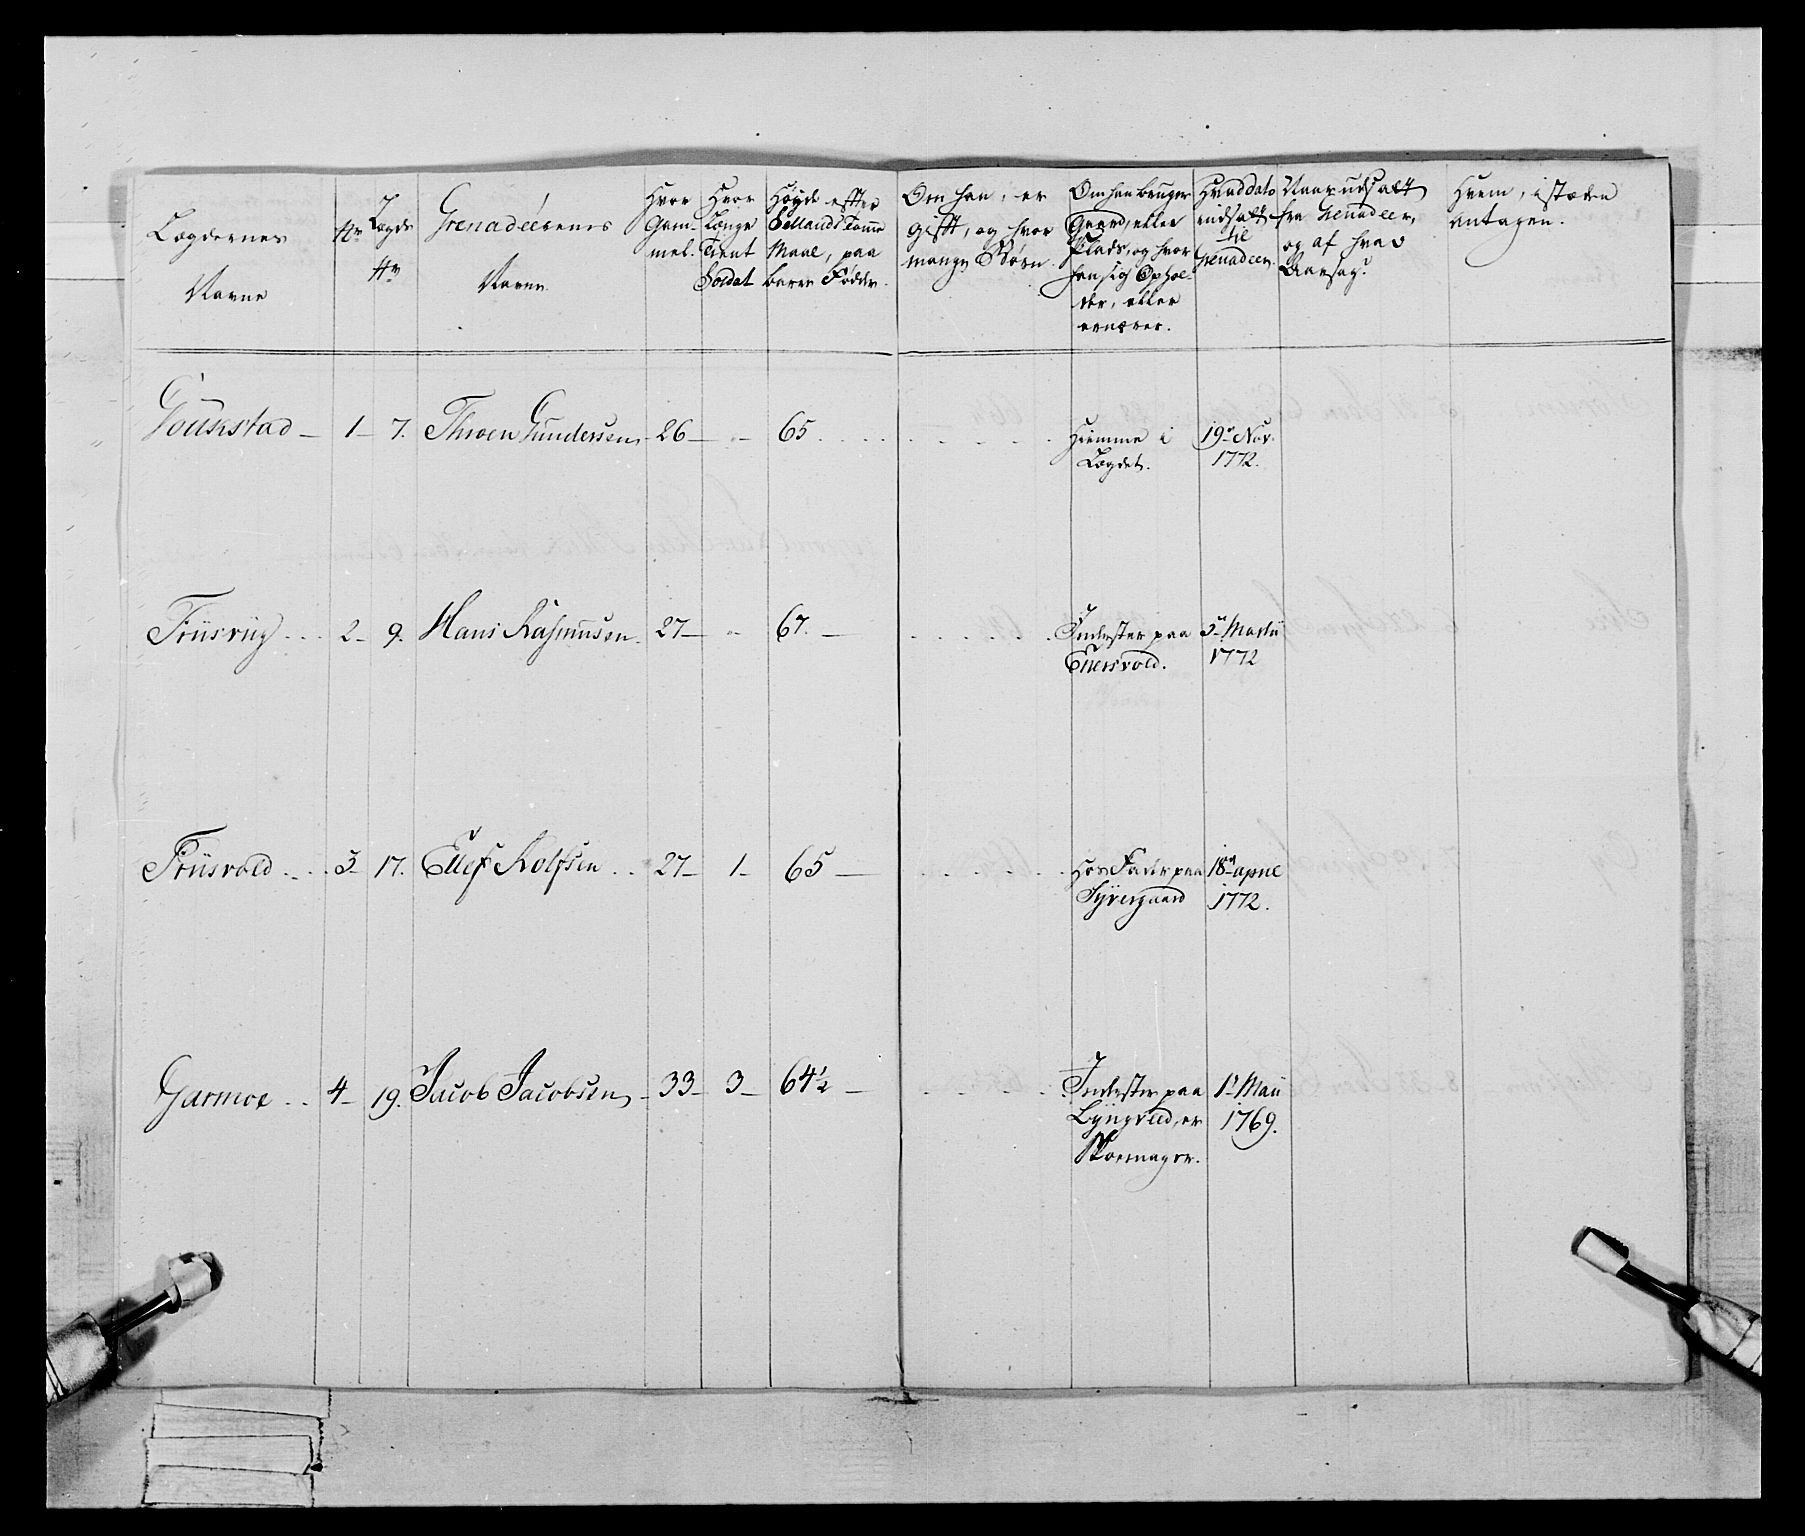 Lægdernes Navne
Nr
Lægds Nr
Grenadeerenes Navne
Hvor Gam-
mel.
Hvor
Længe
Tient
Soldat
Høyde efter
Sellands Tomme
Maal, paa
bare Fødder.
Om han, er
gift, og hvor
mange Børn.
Om han bruger
Gaard, eller
Plads, og hvor
han sig Ophol-
der, eller
ernærer.
Hvad dato
indsatt
til
Grenadeer.
Naar udsatt
fra Grenadeer,
og af hvad
Aarsag?
Hvem, i stæden
antagen.
Goukstad 1 7. Throen Gundersen 26 " 65
Hiemme i
Lægdet.
19de Nov.
1772.
Fruusrüg 2 9. Hans Rasmusen 27 " 67.
Inderster paa
Ellersvold.
3de Martii
1772
Fruusvold 3 17. Ellef Rolfsen 27 1 65
Hos Fader paa
Syversgaard
18de April
1772.
Garmoe 4 19. Jacob Jacobsen 33 3 64 1/2
Inderster paa
Lyngveed, er
Skoemager.
1te Maii
1769.